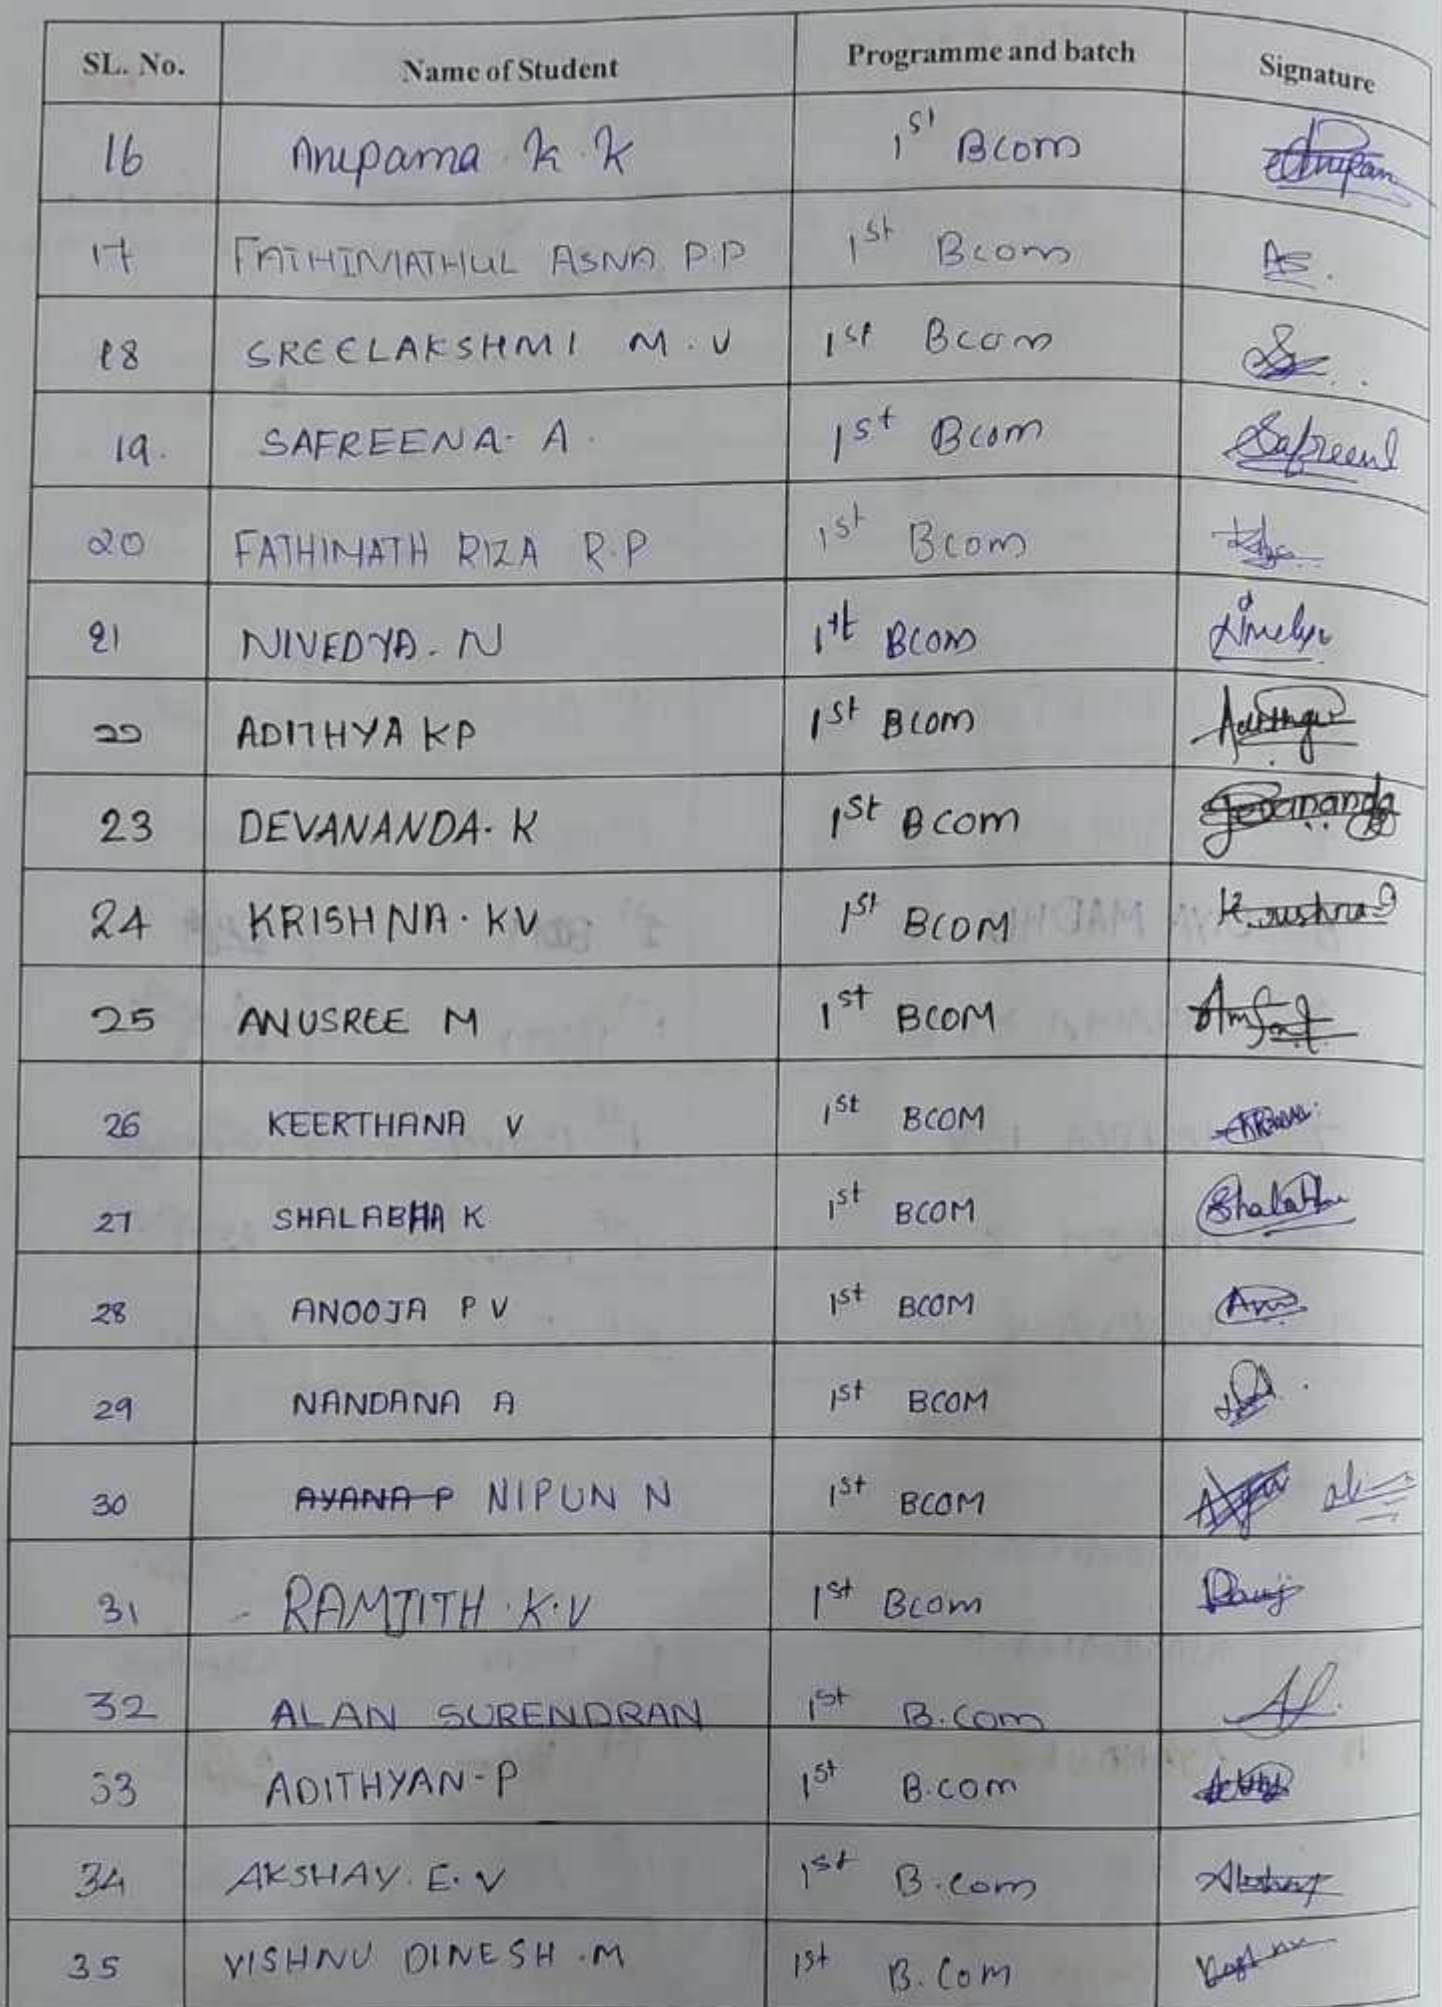 SL. No. Name of Student Programme and batch Signature
16 Anupama K.K 1st Bcom
17 FATHIMATHUL ASNA P.P 1st Bcom As.
18 SREELAKSHMI M.V 1st Bcom
19. SAFREENA. A. 1st Bcom Safreena
20 FATHIMATH RIZA R.P 1st Bcom
21 NIVEDYA. N 1st Bcom
22 ADITHYA KP 1st Bcom
23 DEVANANDA. K 1st Bcom Devananda
24 KRISHNA. KV 1st BCOM Krishna
25 ANUSREE M 1st BCOM
26 KEERTHANA V 1st BCOM
27 SHALABHA K 1st BCOM Shalabha
28 ANOOJA P V 1st BCOM
29 NANDANA A 1st BCOM
30 AYANA P NIPUN N 1st BCOM
31 RAMJITH K.V 1st Bcom
32 ALAN SURENDRAN 1st B.Com
33 ADITHYAN-P 1st B.com
34 AKSHAY. E. V 1st B.com
35 VISHNU DINESH .M 1st B.Com